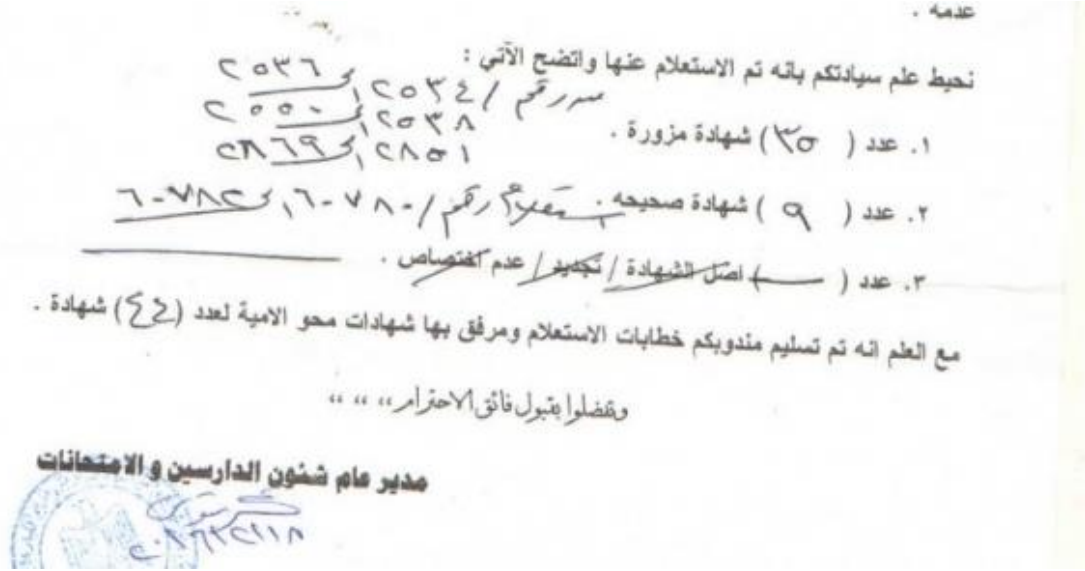 عدمه .
نحيط علم سيادتكم بانه تم الاستعلام عنها واتضح الآتي :
٢٥٣٤ إلى ٢٥٣٦
٢٥٣٨ إلى ٢٥٥٠
١. عدد ( ٣٥ ) شهادة مزورة .
٢٨٥١ إلى ٢٨٦٩
٢. عدد ( ٩ ) شهادة صحيحه . رقم / ٦٠٧٨٠ إلى ٦٠٧٨٢
٣. عدد ( ) اصل الشهادة / تجديد / عدم اختصاص .
مع العلم انه تم تسليم مندوبكم خطابات الاستعلام ومرفق بها شهادات محو الامية لعدد ( ٤٤ ) شهادة .
وتفضلوا بقبول فائق الاحترام ،، ،، ،،
مدير عام شئون الدارسين و الامتحانات